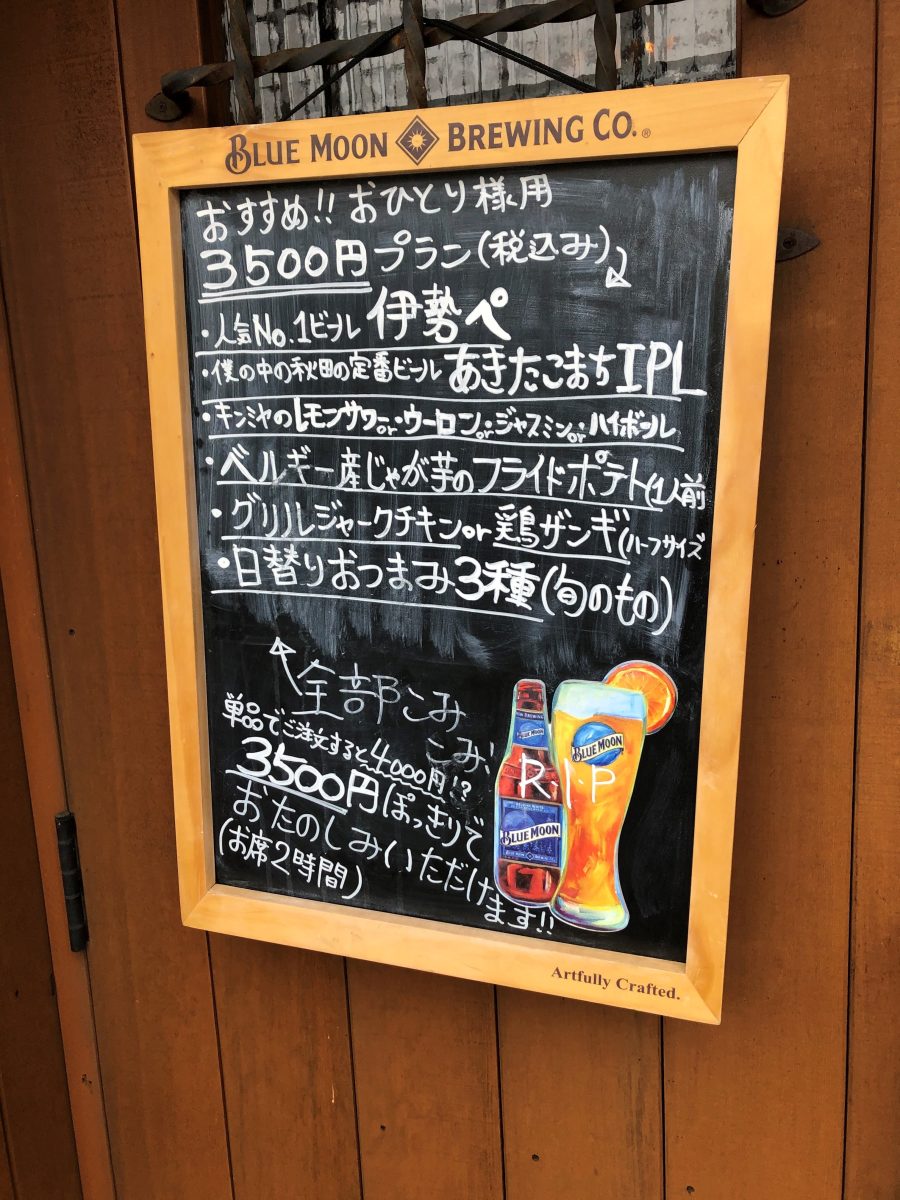 BLUE MOON BREWING CO.®
おすすめ!! おひとり様用
3500円プラン(税込み)
・人気No.1ビール 伊勢ペ
・僕の中の秋田の定番ビール あきたこまちIPL
・キンミヤのレモンサワーor・ウーロンor・ジャスミンor・ハイボール
・ベルギー産じゃが芋のフライドポテト(1人前
・グリルジャークチキンor鶏ザンギ(ハーフサイズ
・日替りおつまみ3種(旬のもの)
全部こみ
こみで
単品でご注文すると4000円!?
3500円ぽっきりで
おたのしみいただけ
ます!!
(お席2時間)
BLUE MOON
BLUE MOON
R.I.P
BLUE MOON
Artfully Crafted.